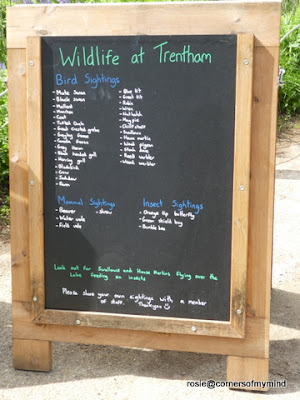 Wildlife at Trentham
Bird Sightings
- Mute Swan
- Black swan
- Mallard
- Moorhen
- Coot
- Tufted Duck
- Great crested grebe
- Greylag Goose
- Canada Goose
- Grey heron
- Black headed gull
- Herring gull
- Blackbird
- Crow
- Jackdaw
- Raven
- Blue tit
- Great tit
- Robin
- Wren
- Nuthatch
- Magpie
- Chiffchaff
- Swallow
- House martin
- Wood pigeon
- Stock dove
- Reed warbler
- Mammal Sightings
- Beaver
- Water vole
- Field vole
- Shrew
Insect Sightings
- Orange tip butterfly
- Green shield bug
- Bumble bee
Look out for Swallows and House Martins flying over the
Lake feeding on insects
Please share your own sightings with a member
of staff. Thankyou ☺
rosie@cornersofmymind